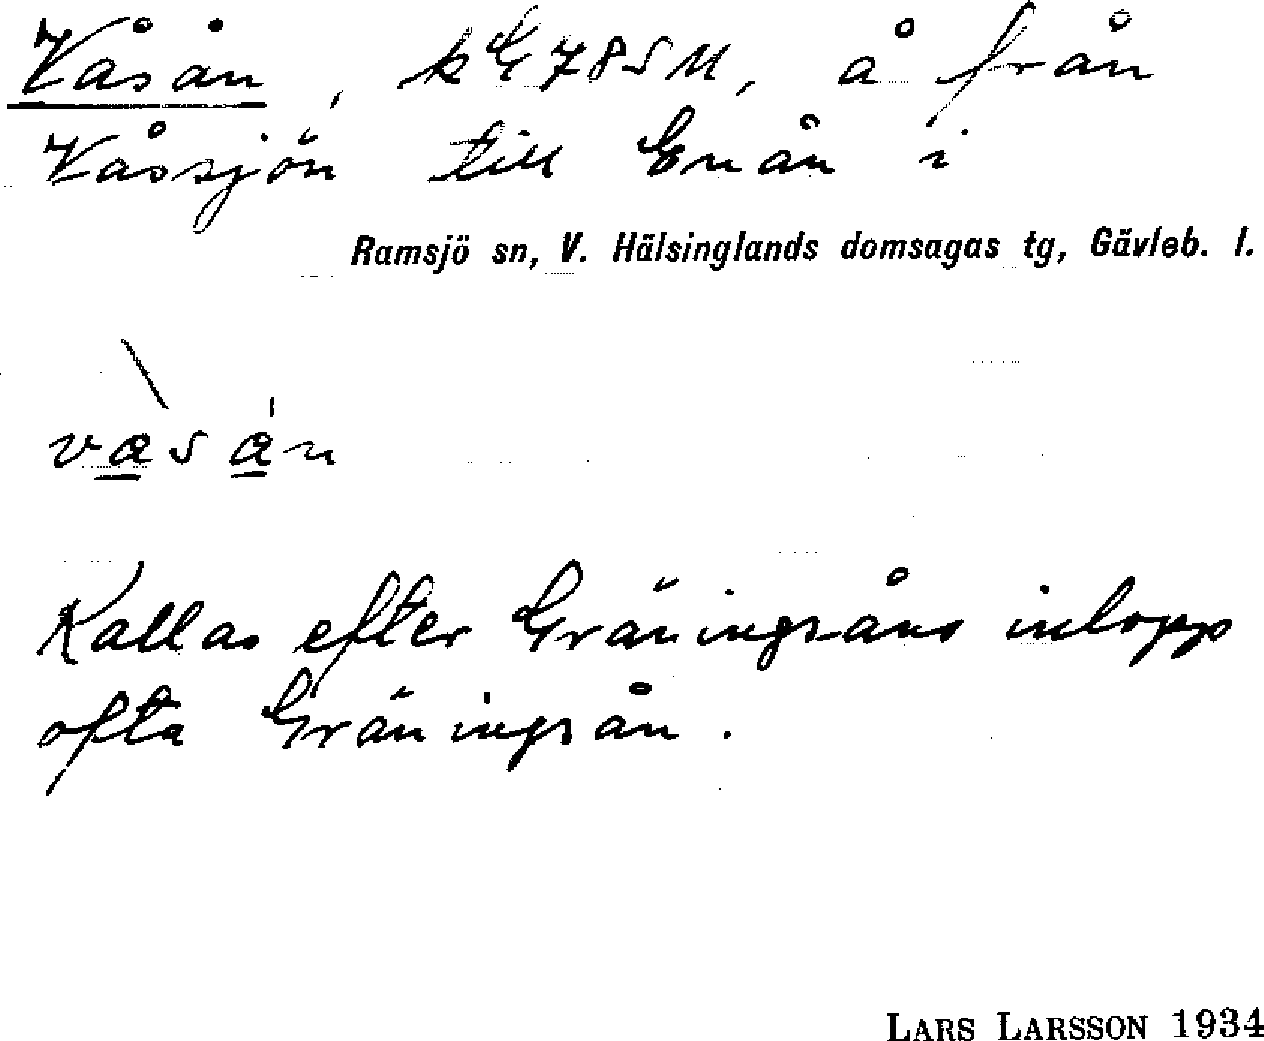 Våsån, kG785M, å från
Våssjön till Enån i
Ramsjö sn, V. Hälsinglands domsagas tg, Gävleb. l.
Kallas efter Gräningsåns inlopp
ofta Gräningsån.
LARS LARSSON 1934